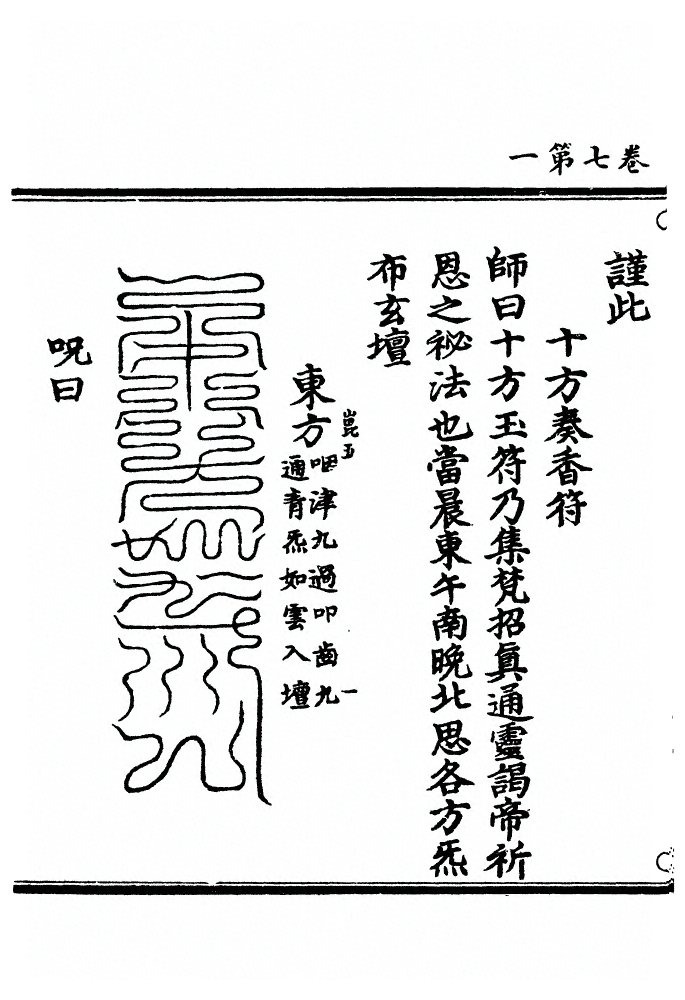 卷七第一
謹此
十方奏香符
師曰十方玉符乃集梵招眞通靈謁帝祈
恩之祕法也當晨東午南晚北思各方炁
布玄壇
崑五
一
東方
咽津九過叩齒九
通青炁如雲入壇
呪曰